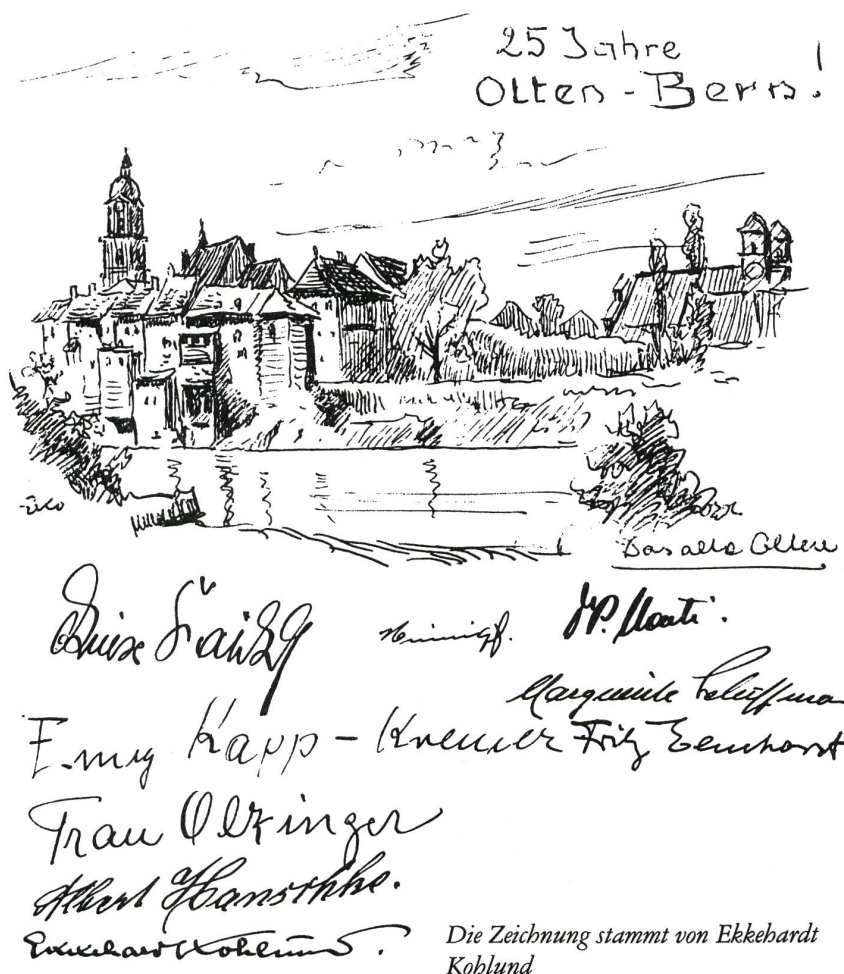 25 Jahre
Olten - Bern!
Eko
Das alte Olten
JP. Marti.
Marguerite
Emmy Kapp - Kremer Fritz
Frau Olzinger
Albert Hanschke.
Ekkehard Kohlund.
Die Zeichnung stammt von Ekkehardt
Kohlund